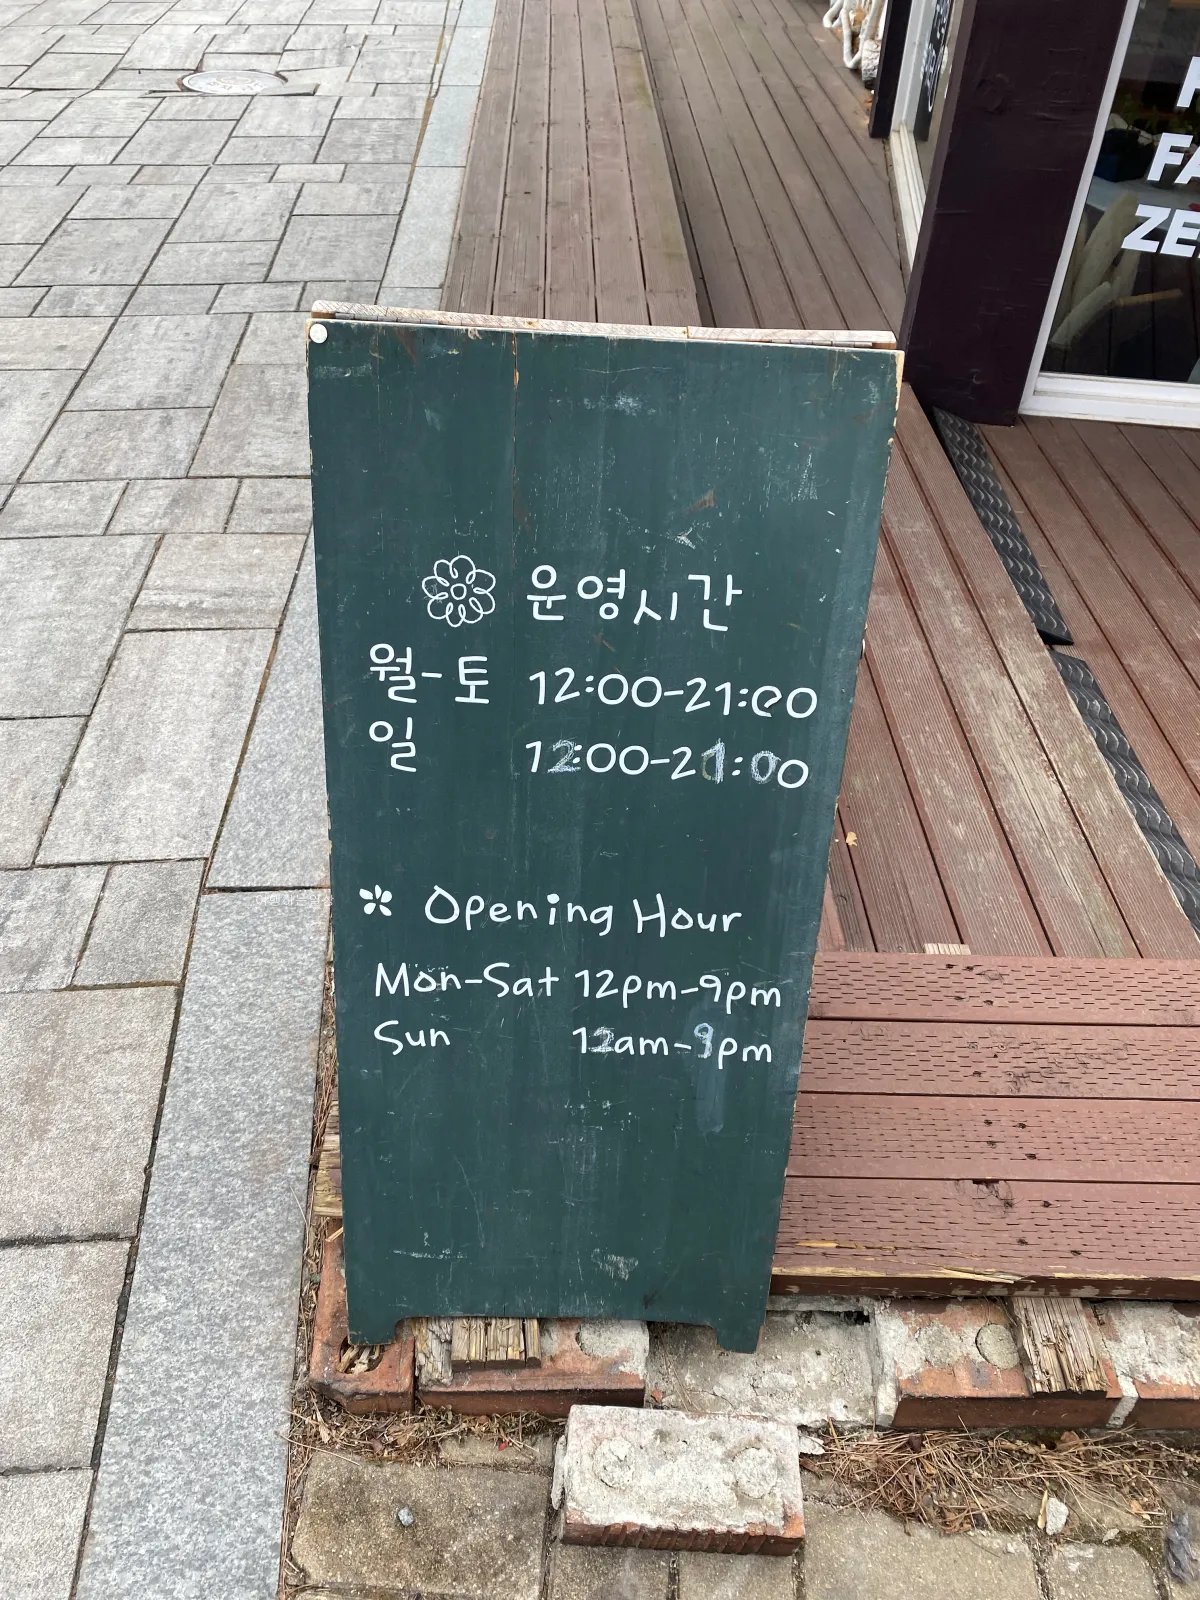 운영시간
월-토 12:00-21:00
일 12:00-21:00
Opening Hour
Mon-Sat 12pm-9pm
Sun 12am-9pm
FA
ZE